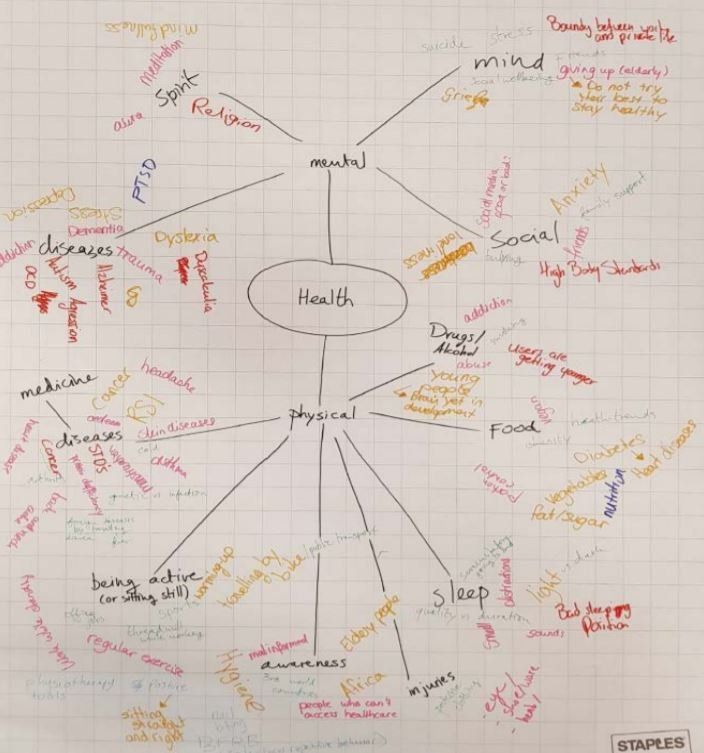 mindfullness
meditation
Spirit
aura
Religion
PTSD
suicide
stress
mind
Boundry between work
and private life
Friends
giving up (elderly)
Do not try
their best to
stay healthy
social wellbeing
Grief
mental
Depression
Stress
Dementia
addiction
diseases
trauma
Dyslexia
Dyscalculia
OCD
Autism
Agression
Alzheimer
social media
good or bad?
Anxiety
family support
Social
friends
bullying
loneliness
High Body Standards
Health
addiction
Drugs/
Alcohol
smoking
abuse
Users are
getting younger
young
people
Brain yet in
development
medicine
Cancer
headache
RSI
physical
diseases
skin diseases
cold
asthma
STDs
heart disease
Cancer
genetic vs infection
vegan
health trends
Food
obesity
Diabetes
Heart diseases
vegetables
nutrition
fat/sugar
portion
control
being active
(or sitting still)
warming up
travelling by
bike
/public transport
sports
regular exercise
physiotherapy
tools
posture
sitting
straight
and right
Hygiene
malinformed
awareness
3rd world
countries
Africa
people who can't
access healthcare
Eldery people
injuries
sleep
quality vs duration
distractions
smell
sounds
light
vs dark
Bad sleeping
Position
nail
biting
STAPLES